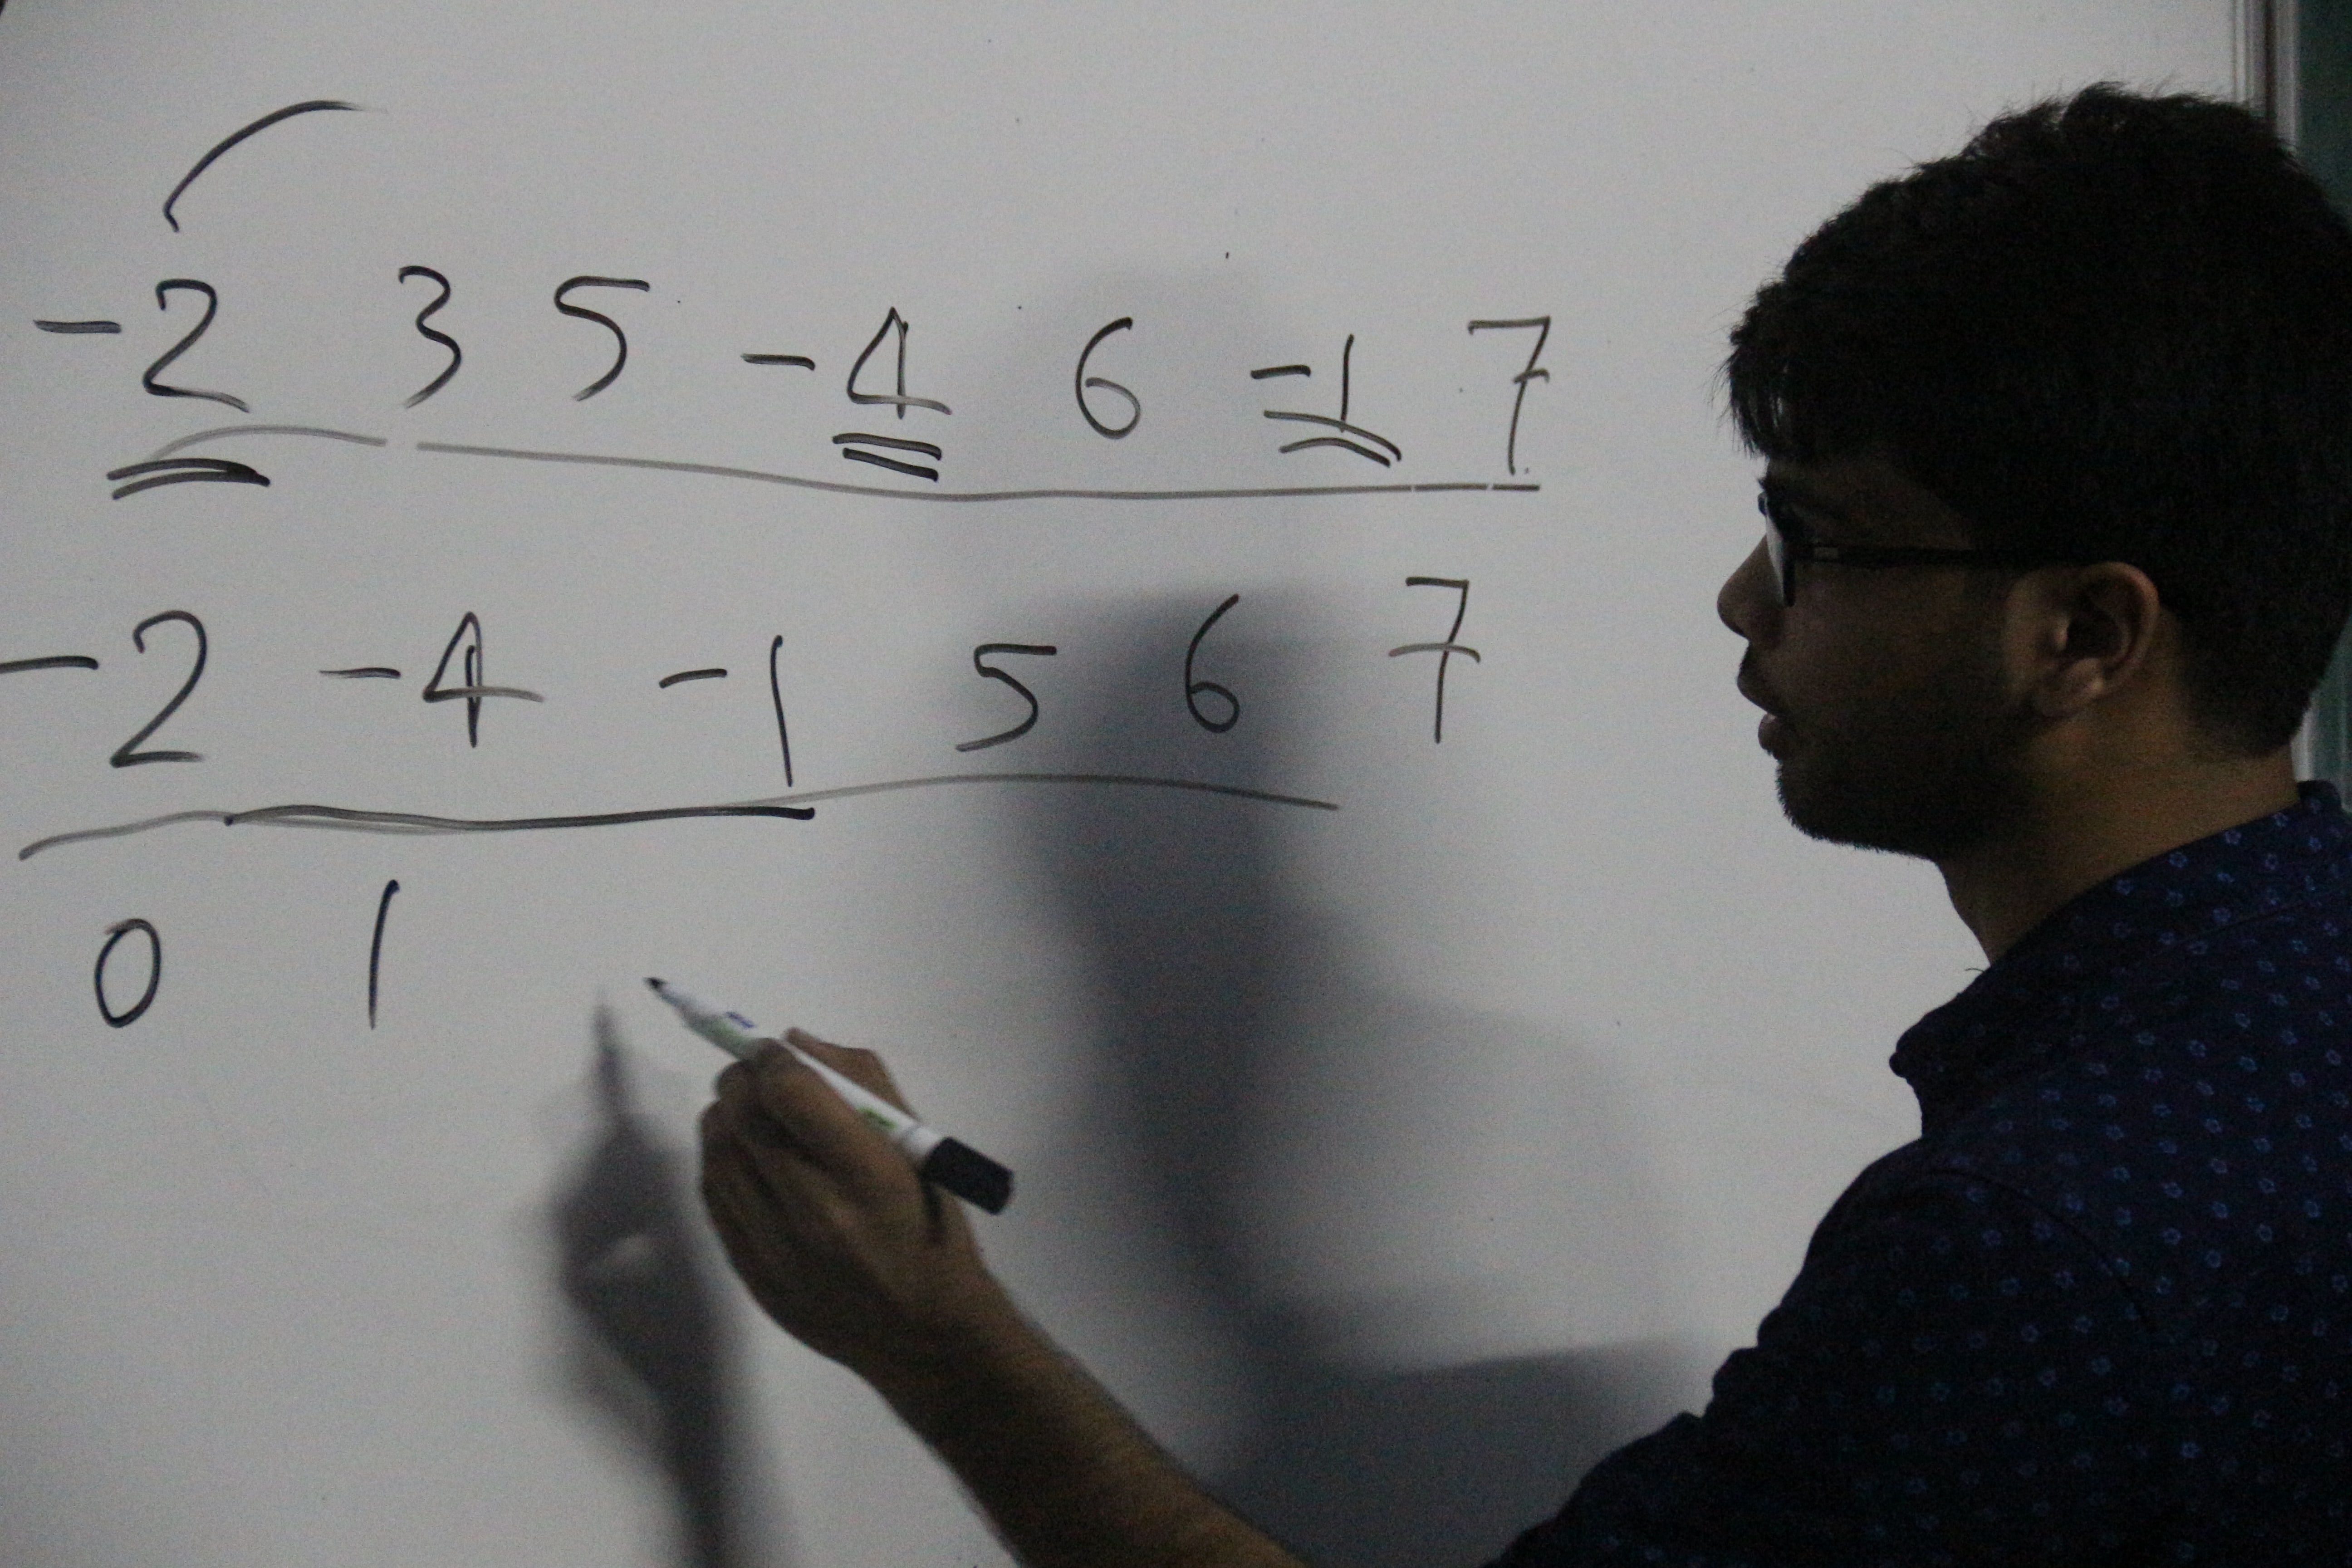 -2 3 5 -4 6 -1 7
-2 -4 -1 5 6 7
0 1